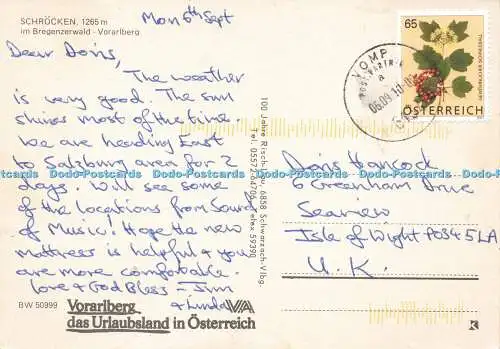 SCHRÖCKEN, 1265 m
im Bregenzerwald - Vorarlberg
Mon 6th Sept
Dear Doris,
The weather
is very good. The sun
shines most of the time.
We are heading East
to Salzburg area for 2
days. Will see some
of the locations from Sound
of Music! Hope the new
mattress is helpful & you
are more comfortable.
Love & God Bless - Jim
& Linda
BW 50999
Vorarlberg
das Urlaubsland in Österreich
VA
100 Jahre Risch-Lau, 6858 Schwarzach-Vlbg.
65
ÖSTERREICH
VOMP
Doris Hancock
6 Greenham Drive
Seaview
Isle of Wight PO34 5LA
U.K.
Dodo-Postcards Dodo-Postcards Dodo-Postcards Dodo-Postcards Dodo-Postcards